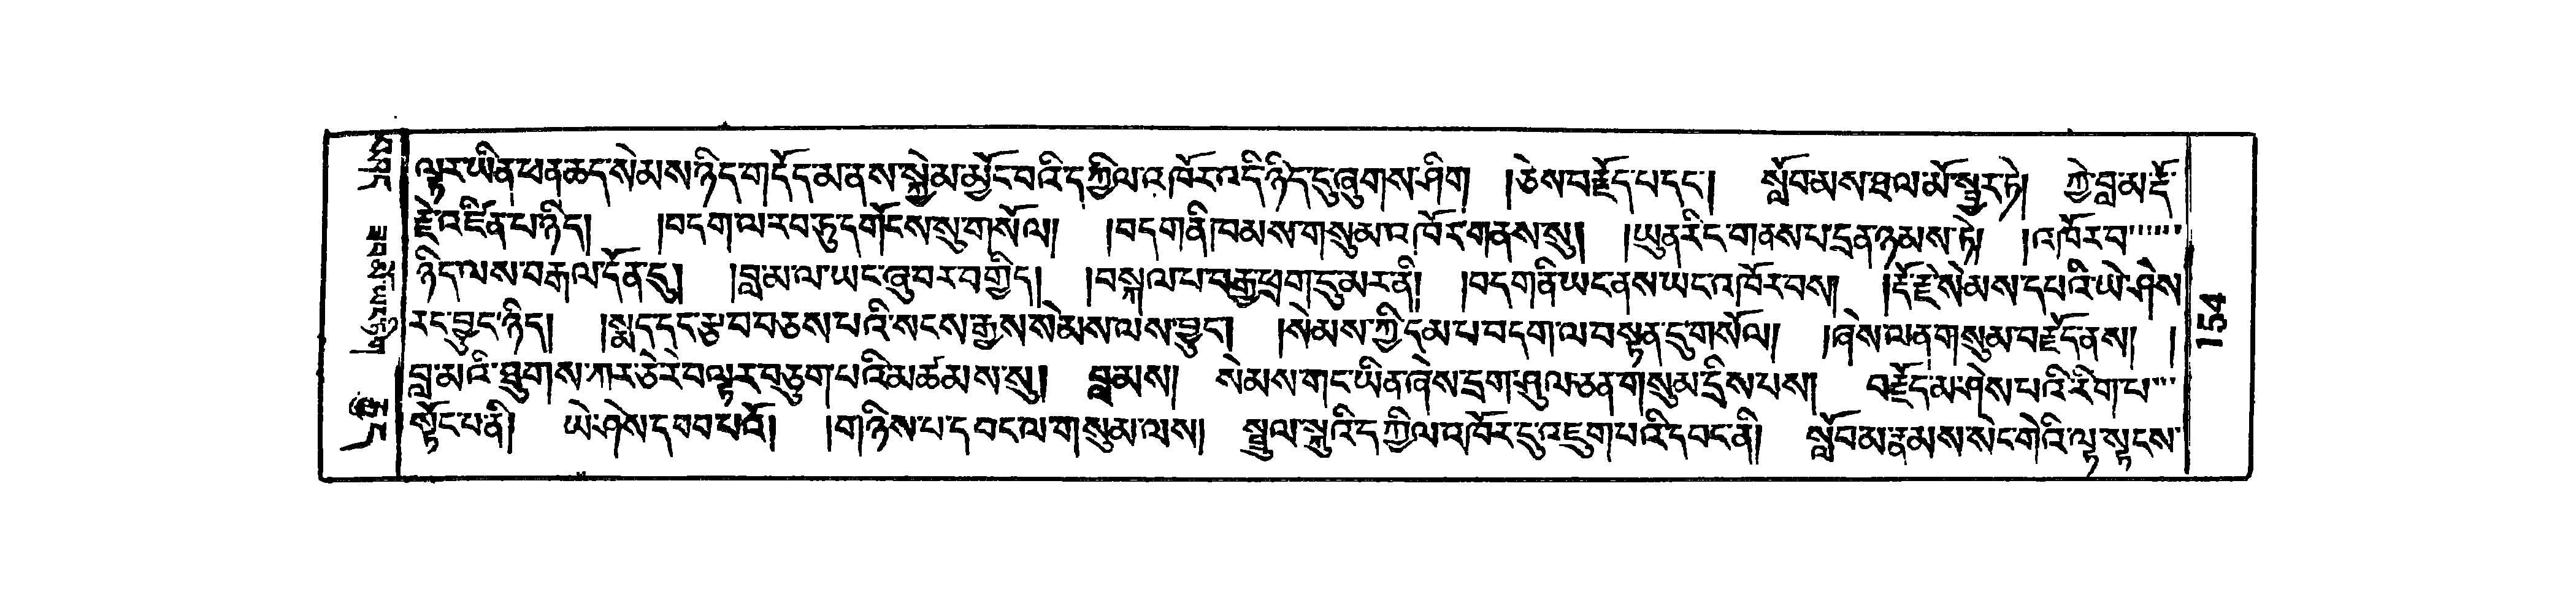 ལྟར་ཡིན་ཕན་ཆད་སེམས་ཉིད་གདོད་མ་ནས་སྐྱེ་མ་མྱོང་བའི་དཀྱིལ་འཁོར་འདི་ཉིད་དུ་ཞུགས་ཤིག །ཅེས་བརྗོད་པ་དང་། སློབ་མས་ཐལ་མོ་སྦྱར་ཏེ། ཀྱེ་བླ་མ་རྡོ་
རྗེ་འཛིན་པ་ཉིད། །བདག་ལ་རབ་ཏུ་དགོངས་སུ་གསོལ། །བདག་ནི་ཁམས་གསུམ་འཁོར་གནས་སུ། །ཡུན་རིང་གནས་པ་དྲན་ཉམས་ཏེ། །འཁོར་བ་
ཉིད་ལས་བརྒལ་དོན་དུ། །བླ་མ་ལ་ཡང་ཞུ་བར་བགྱིད། །བསྐལ་པ་བརྒྱ་ཕྲག་དུ་མར་ནི། །བདག་ནི་ཡང་ནས་ཡང་འཁོར་བས། །རྡོ་རྗེ་སེམས་དཔའི་ཡེ་ཤེས་
རང་བྱུང་ཉིད། །སྨད་དང་རྩ་བ་བཅས་པའི་སངས་རྒྱས་སེམས་ལས་བྱུང་། །སེམས་ཀྱི་དམ་པ་བདག་ལ་བསྟན་དུ་གསོལ། །ཞེས་ལན་གསུམ་བརྗོད་ནས། །
བླ་མའི་ཐུགས་ཀར་ཅེ་རེ་བལྟར་བཅུག་པའི་མཚམས་སུ། བླ་མས། སེམས་གང་ཡིན་ཞེས་དྲག་ཤུལ་ཅན་གསུམ་དྲིས་པས། བརྗོད་མ་ཤེས་པའི་རིག་པ་
སྟོང་པ་ནི། ཡེ་ཤེས་དབབ་པའོ། །གཉིས་པ་དབང་ལ་གསུམ་ལས། སྤྲུལ་སྐུའི་དཀྱིལ་འཁོར་དུ་འཇུག་པའི་དབང་ནི། སློབ་མ་རྣམས་སེང་གེའི་ལྟ་སྟངས་